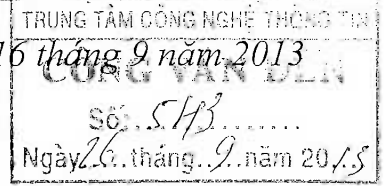 TRUNG TÂM CÔNG NGHỆ THÔNG TIN
6 tháng 9 năm 2013
CÔNG VĂN ĐẾN
Số: 543
Ngày 26 tháng 9 năm 2013